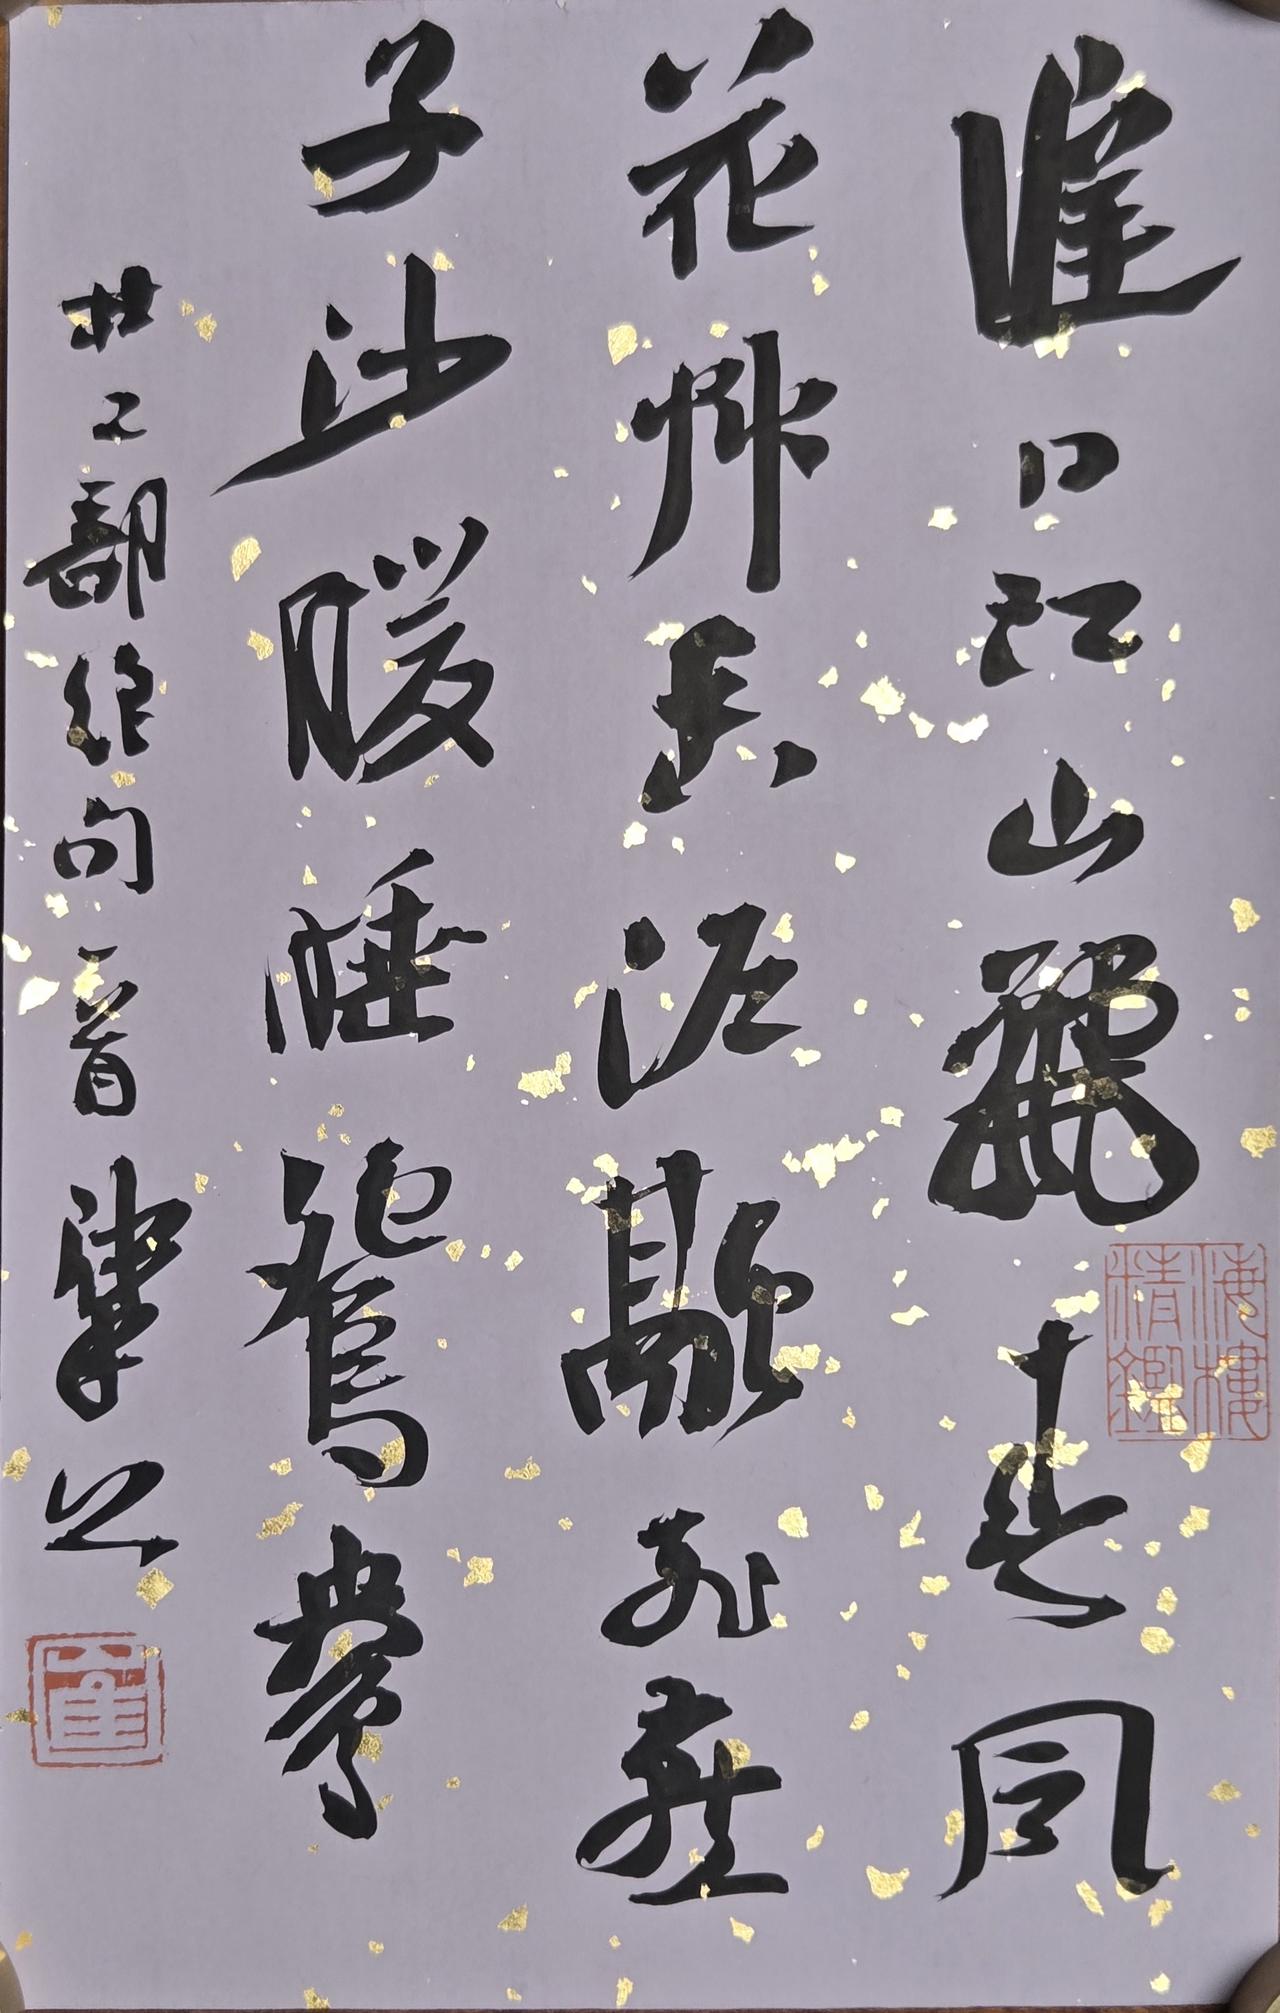 遲日江山麗春風
花艸香泥融飛燕
子沙暖睡鴛鴦
杜工部絕句一首肇之
海樓
精鑑